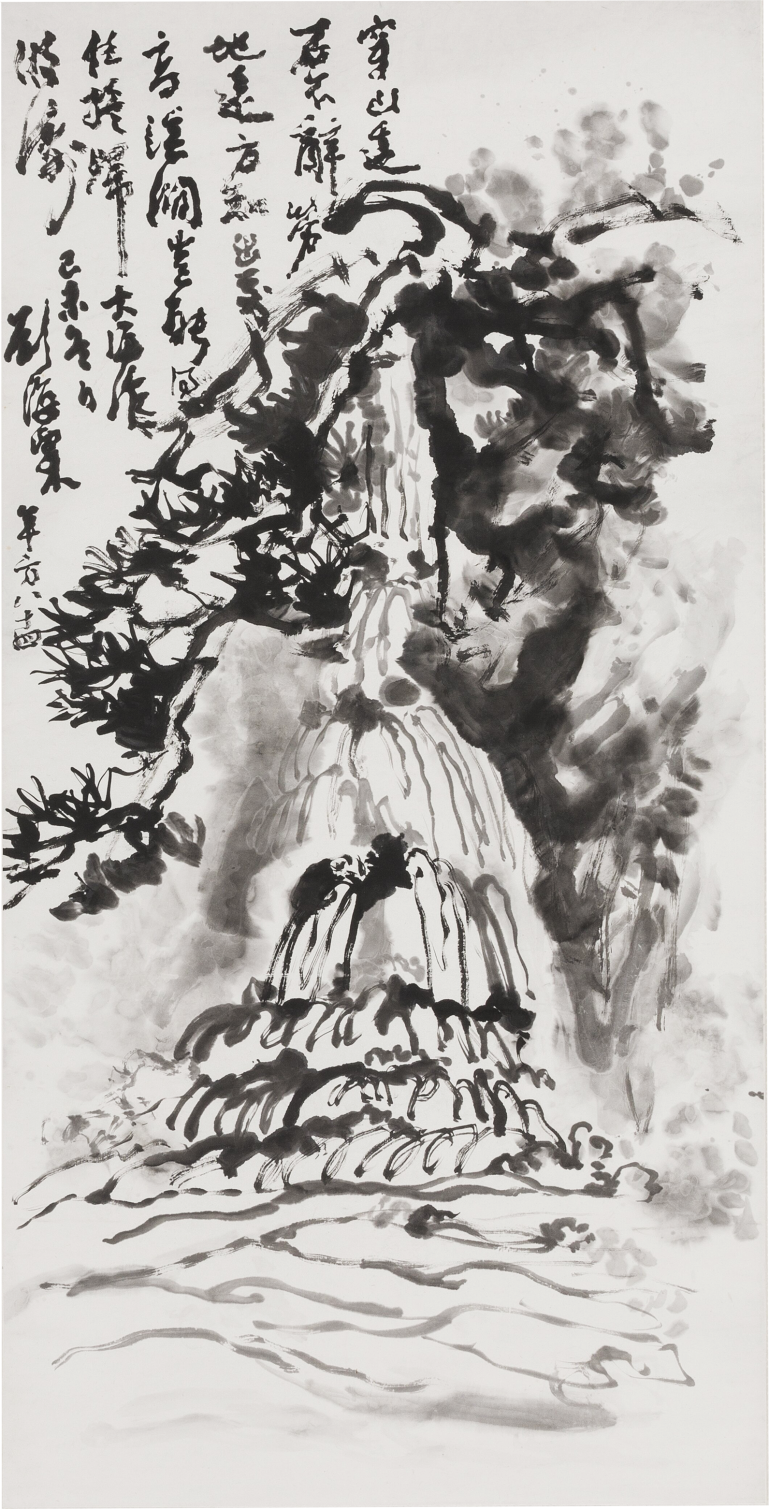 穿山透
石不辭勞
地遠方知出處
高溪澗豈能留
住總歸大海作
波濤己未冬日
劉海粟
年方八十四